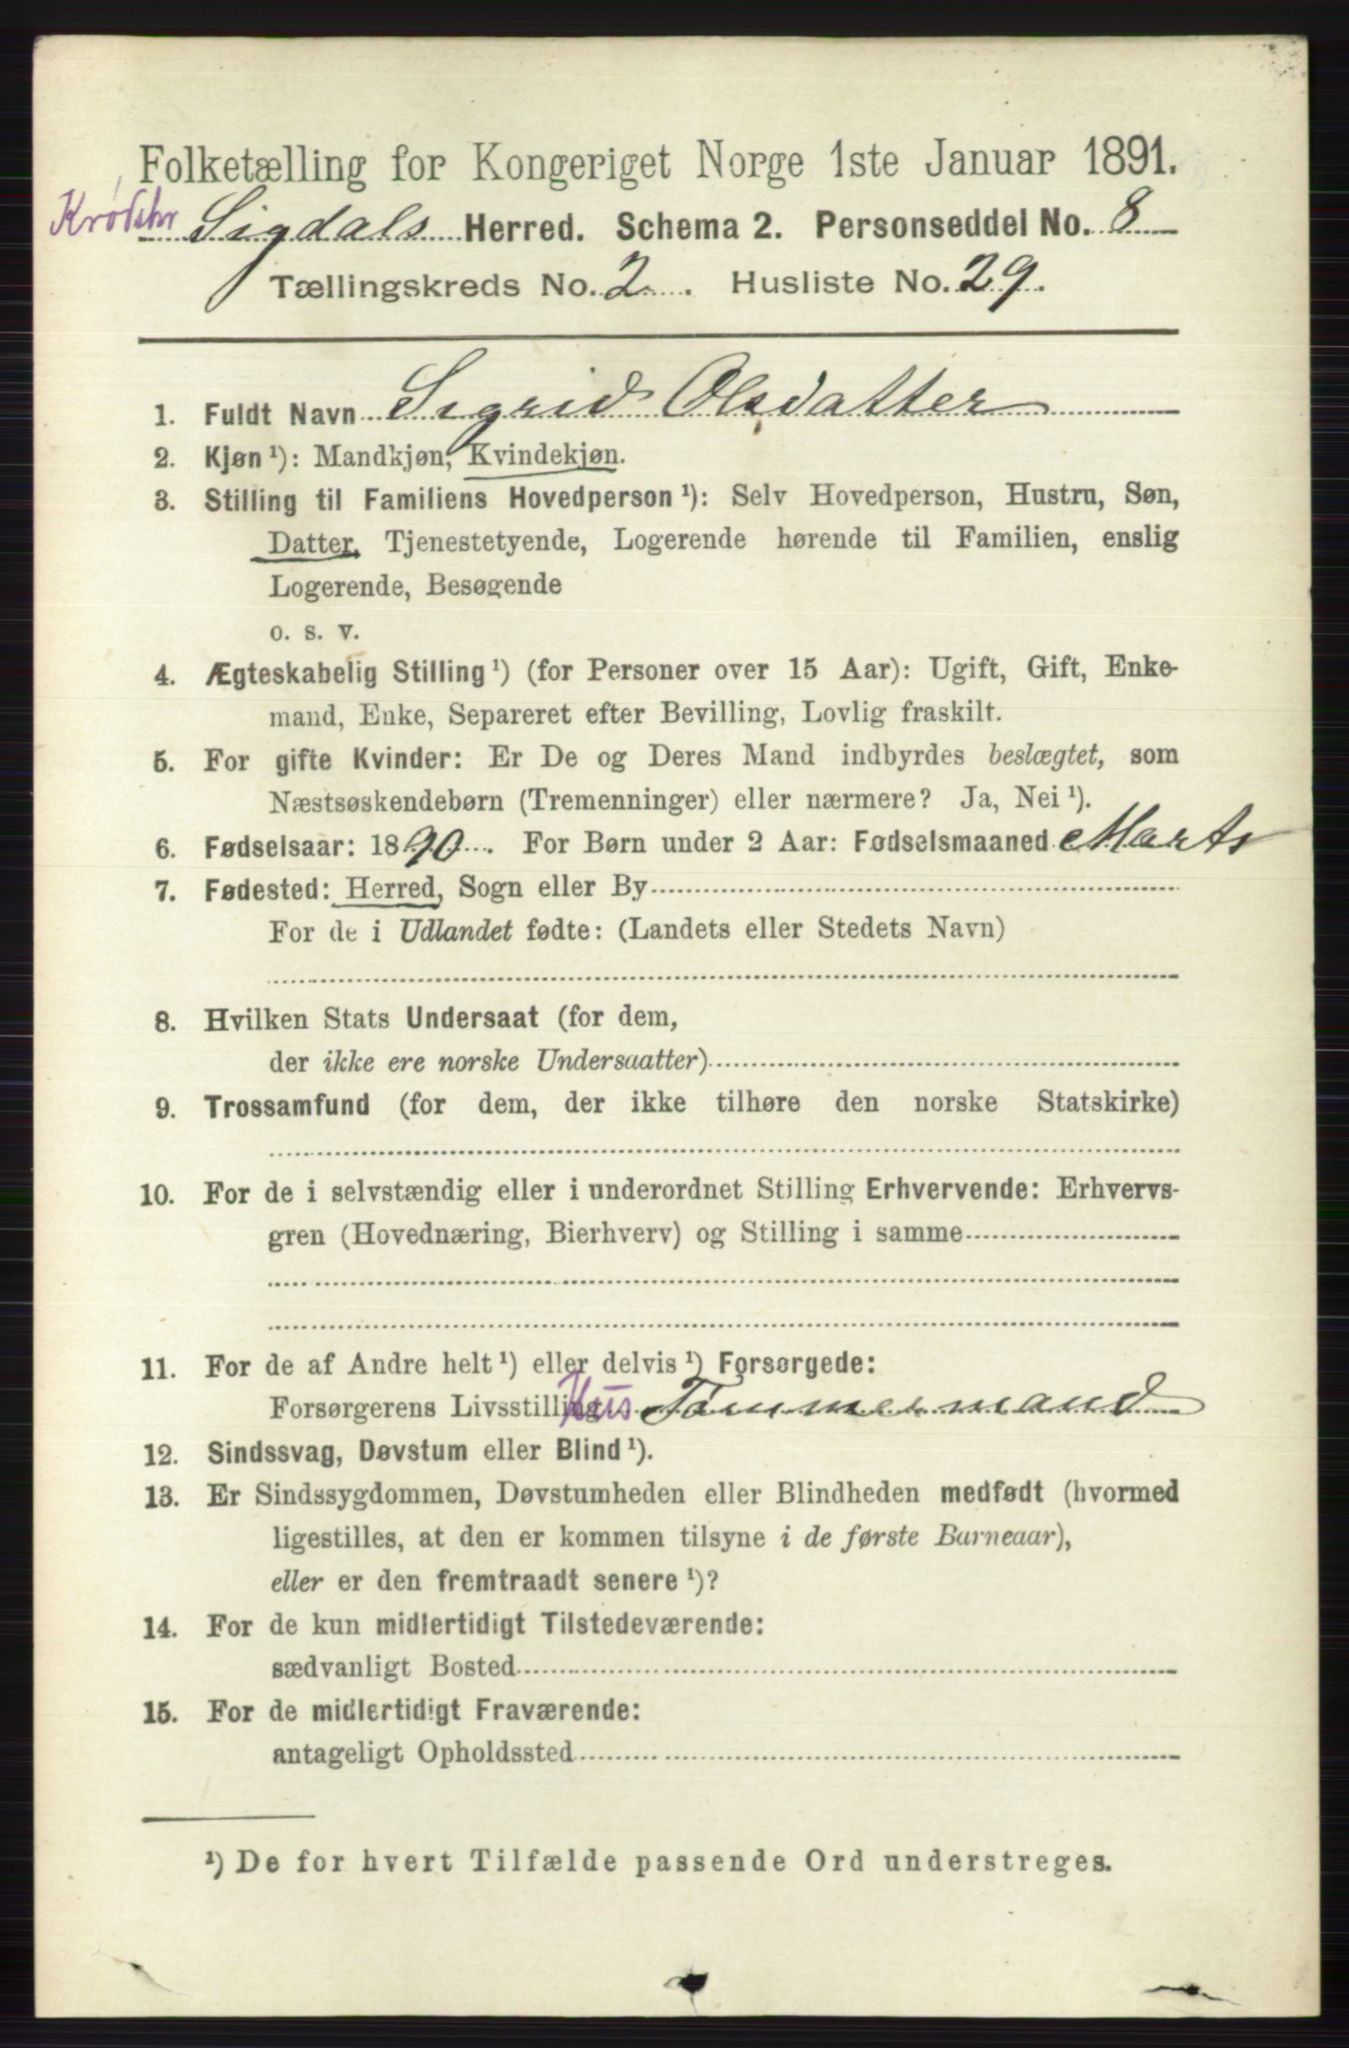 Folketælling for Kongeriget Norge 1ste Januar 1891.
Sigdals Herred. Schema 2. Personseddel No. 8
Tællingskreds No. 2. Husliste No. 29.
1. Fuldt Navn Sigrid Olsdatter
2. Kjøn ¹): Mandkjøn, Kvindekjøn.
3. Stilling til Familiens Hovedperson ¹): Selv Hovedperson, Hustru, Søn,
Datter, Tjenestetyende, Logerende hørende til Familien, enslig
Logerende, Besøgende
o. s. v.
4. Ægteskabelig Stilling ¹) (for Personer over 15 Aar): Ugift, Gift, Enke-
mand, Enke, Separeret efter Bevilling, Lovlig fraskilt.
5. For gifte Kvinder: Er De og Deres Mand indbyrdes beslægtet, som
Næstsøskendebørn (Tremenninger) eller nærmere? Ja, Nei ¹).
6. Fødselsaar: 1890. For Børn under 2 Aar: Fødselsmaaned Marts
7. Fødested: Herred, Sogn eller By
For de i Udlandet fødte: (Landets eller Stedets Navn)
8. Hvilken Stats Undersaat (for dem,
der ikke ere norske Undersaatter)
9. Trossamfund (for dem, der ikke tilhøre den norske Statskirke)
10. For de i selvstændig eller i underordnet Stilling Erhvervende: Erhvervs-
gren (Hovednæring, Bierhverv) og Stilling i samme
11. For de af Andre helt ¹) eller delvis ¹) Forsørgede:
Forsørgerens Livsstilling Hus Tømmermand
12. Sindssvag, Døvstum eller Blind ¹).
13. Er Sindssygdommen, Døvstumheden eller Blindheden medfødt (hvormed
ligestilles, at den er kommen tilsyne i de første Barneaar),
eller er den fremtraadt senere ¹)?
14. For de kun midlertidigt Tilstedeværende:
sædvanligt Bosted
15. For de midlertidigt Fraværende:
antageligt Opholdssted
¹) De for hvert Tilfælde passende Ord understreges.